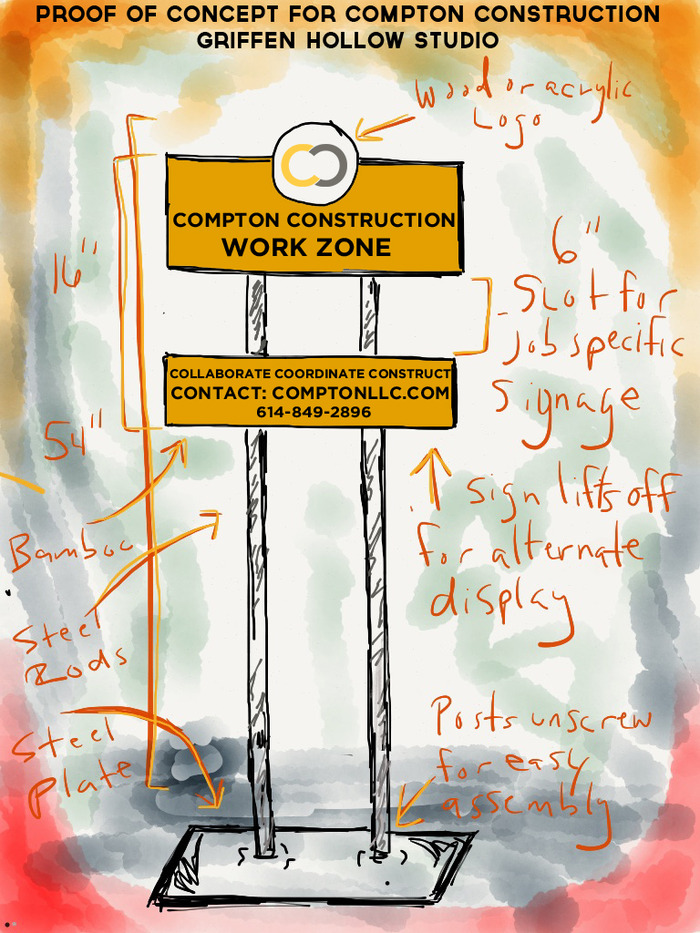 PROOF OF CONCEPT FOR COMPTON CONSTRUCTION
GRIFFEN HOLLOW STUDIO
Wood or acrylic
Logo
COMPTON CONSTRUCTION
WORK ZONE
16"
6"
Slot for
job specific
Signage
COLLABORATE COORDINATE CONSTRUCT
CONTACT: COMPTONLLC.COM
614-849-2896
54"
Sign lifts off
for alternate
display
Bamboo
Steel
Rods
Steel
Plate
Posts unscrew
for easy
assembly